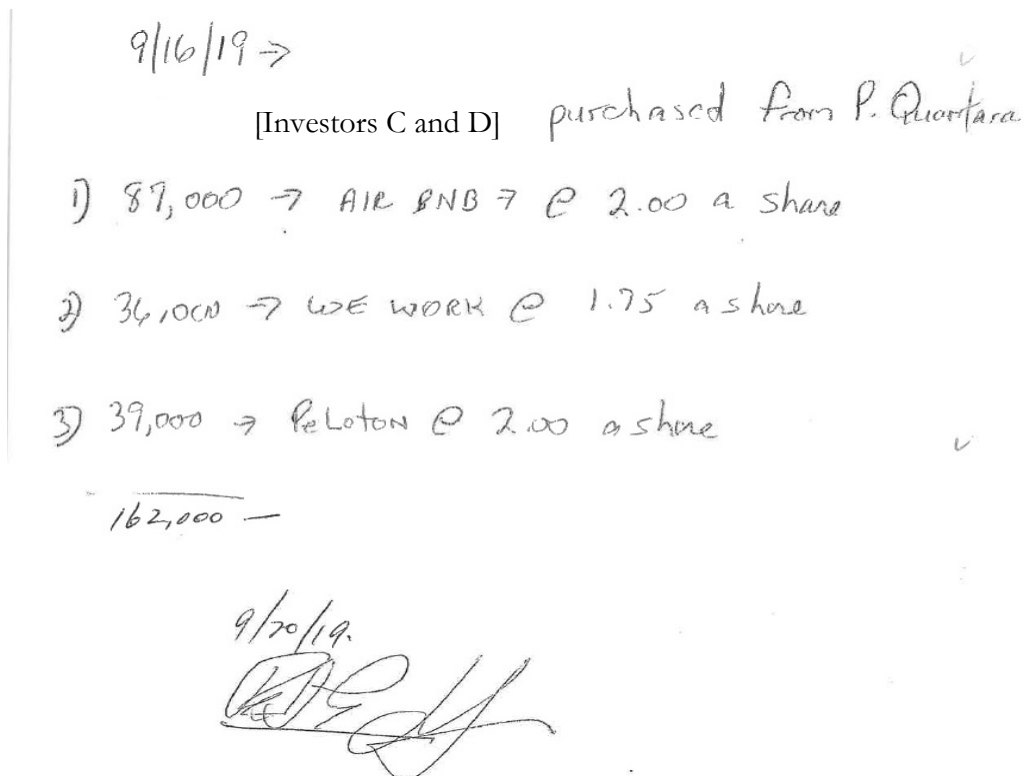 9/16/19 →
[Investors C and D] purchased from P. Quartara
1) 87,000 → AIR BNB → @ 2.00 a share
2) 36,000 → WE WORK @ 1.75 a share
3) 39,000 → PeLoToN @ 2.00 a share
162,000 —
9/20/19.